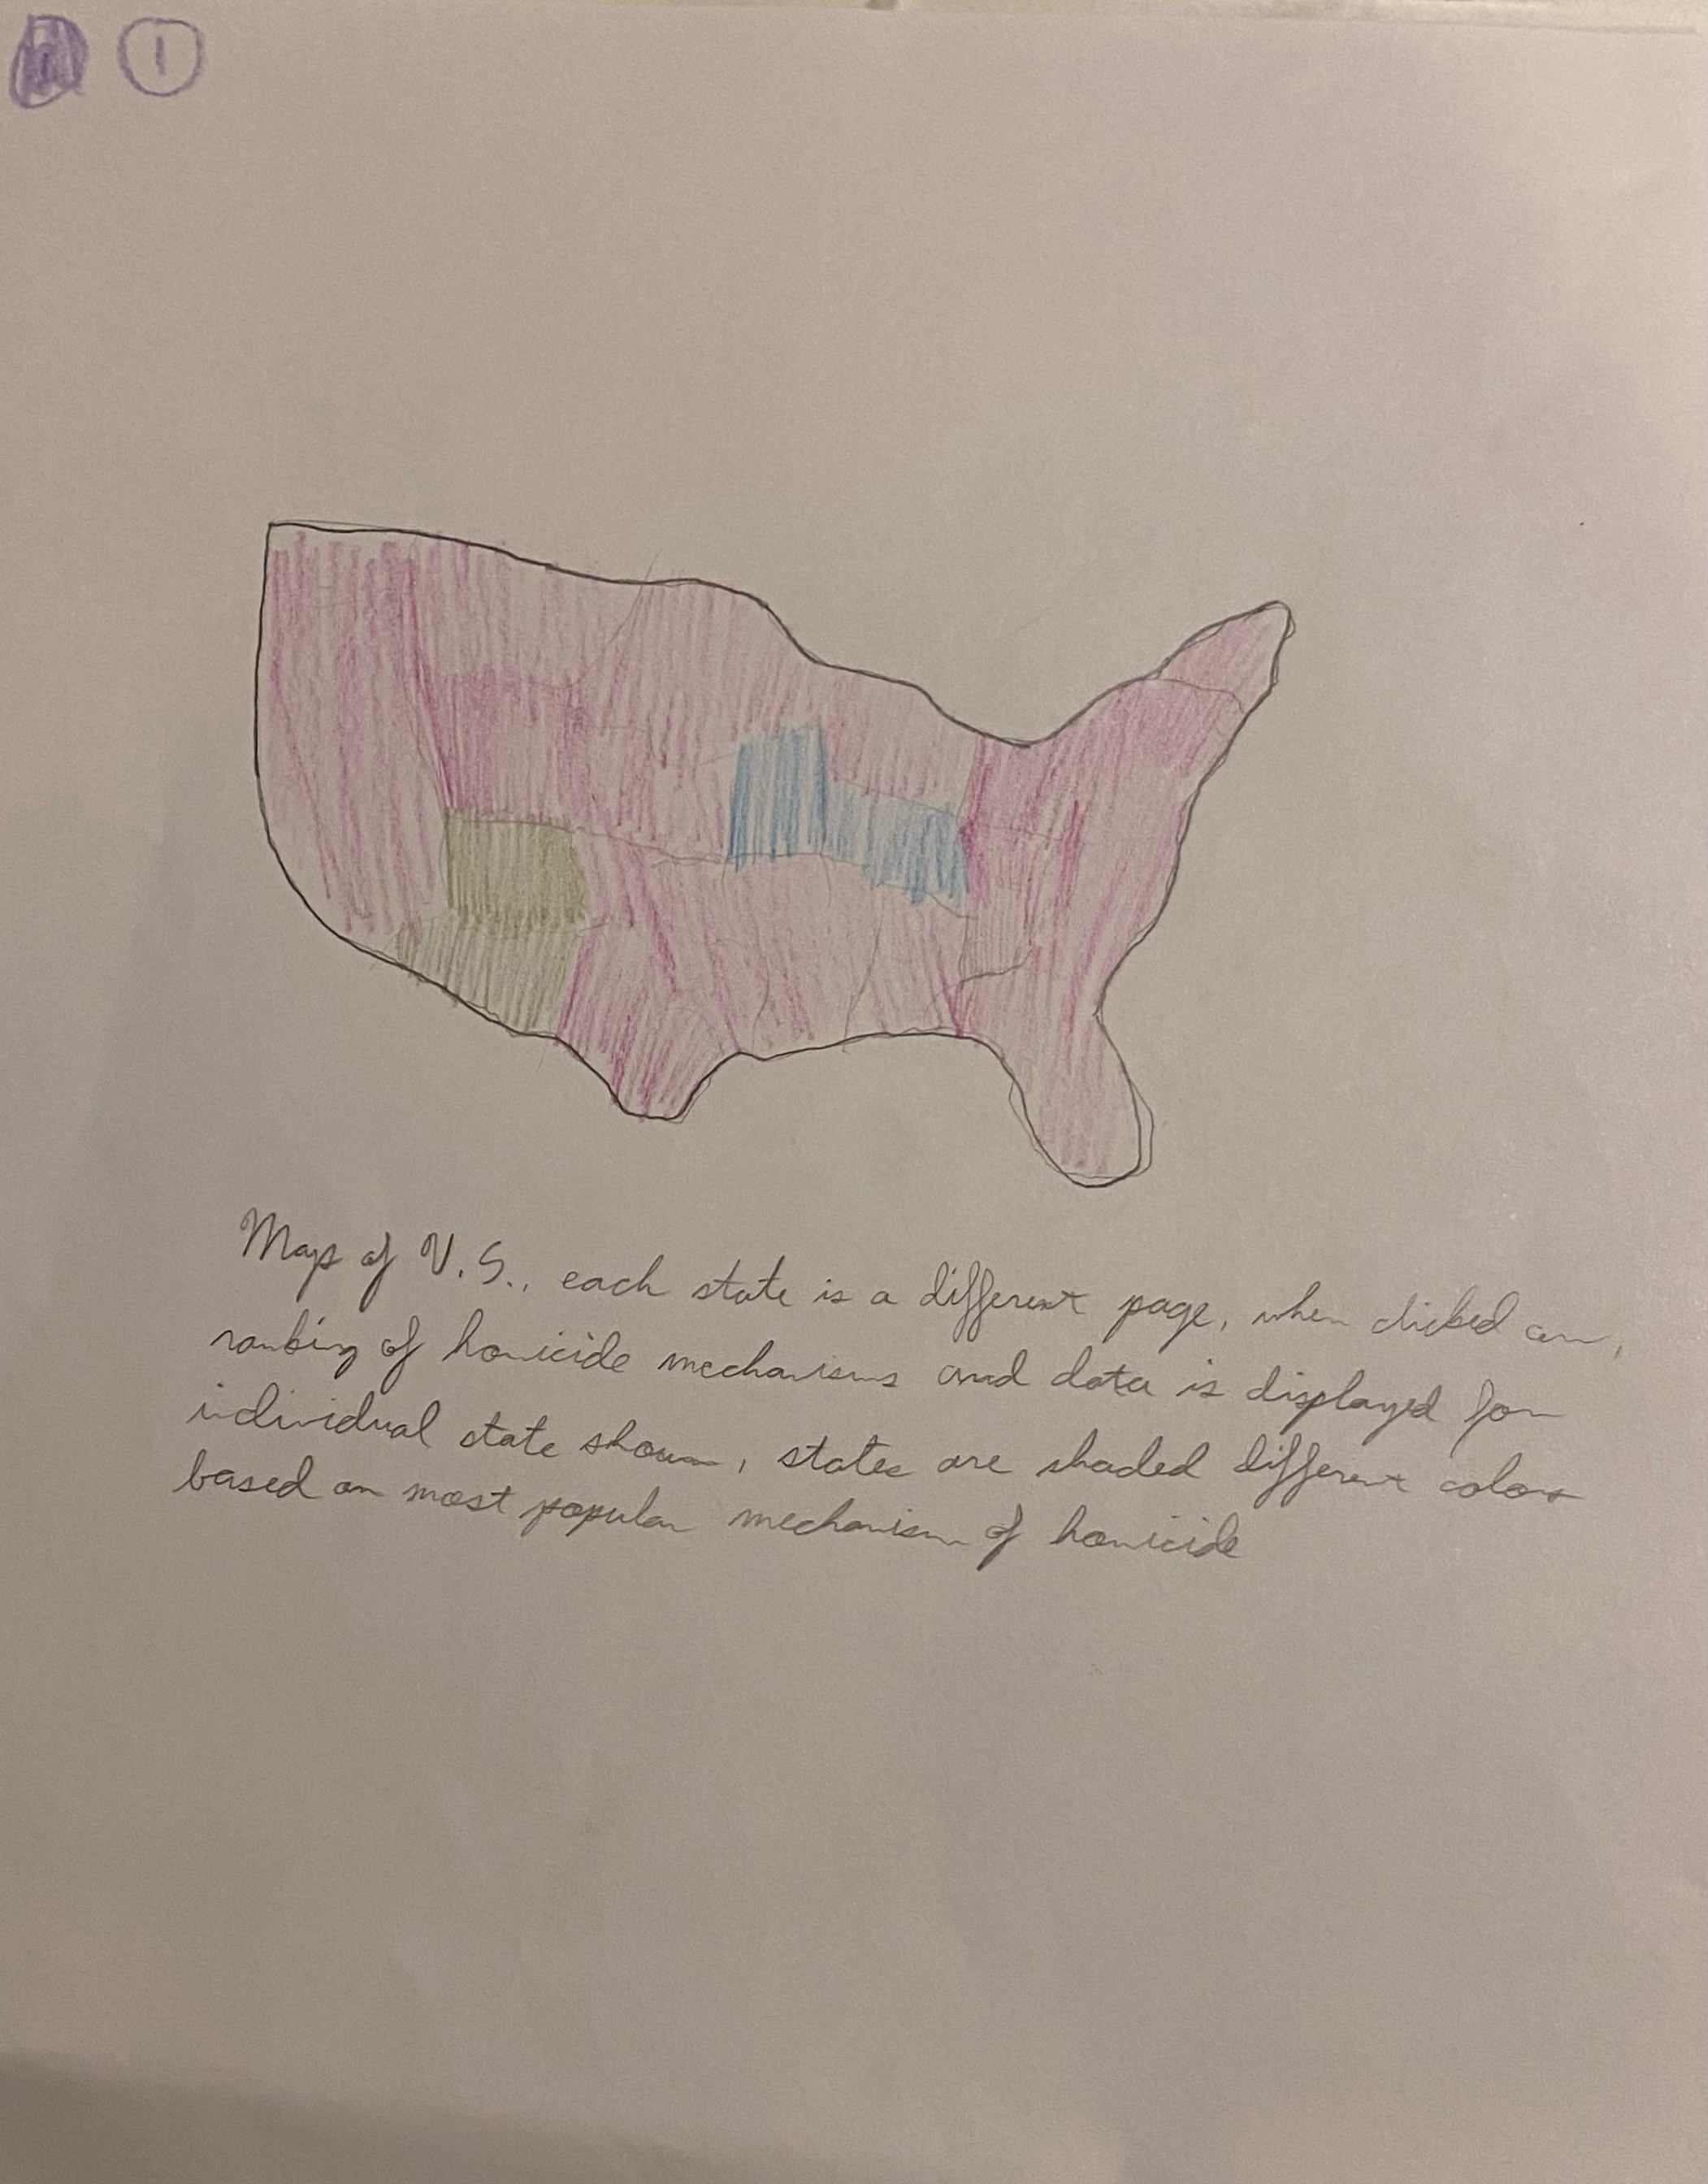 1
Maps of U.S., each state is a different page, when clicked on,
ranking of homicide mechanisms and data is displayed for
individual state shown, states are shaded different colors
based on most popular mechanism of homicide